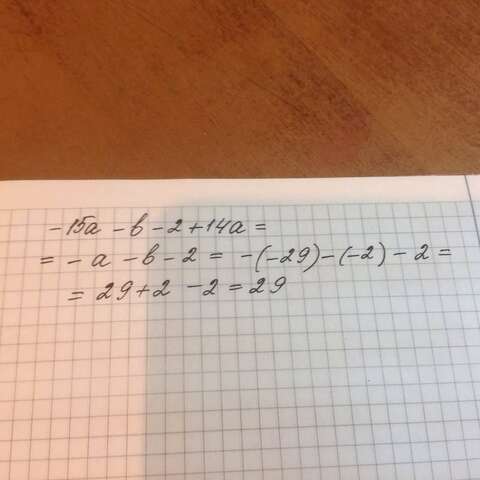 -15a - b - 2 + 14a =
= - a - b - 2 = -(-29) - (-2) - 2 =
= 29 + 2 - 2 = 29